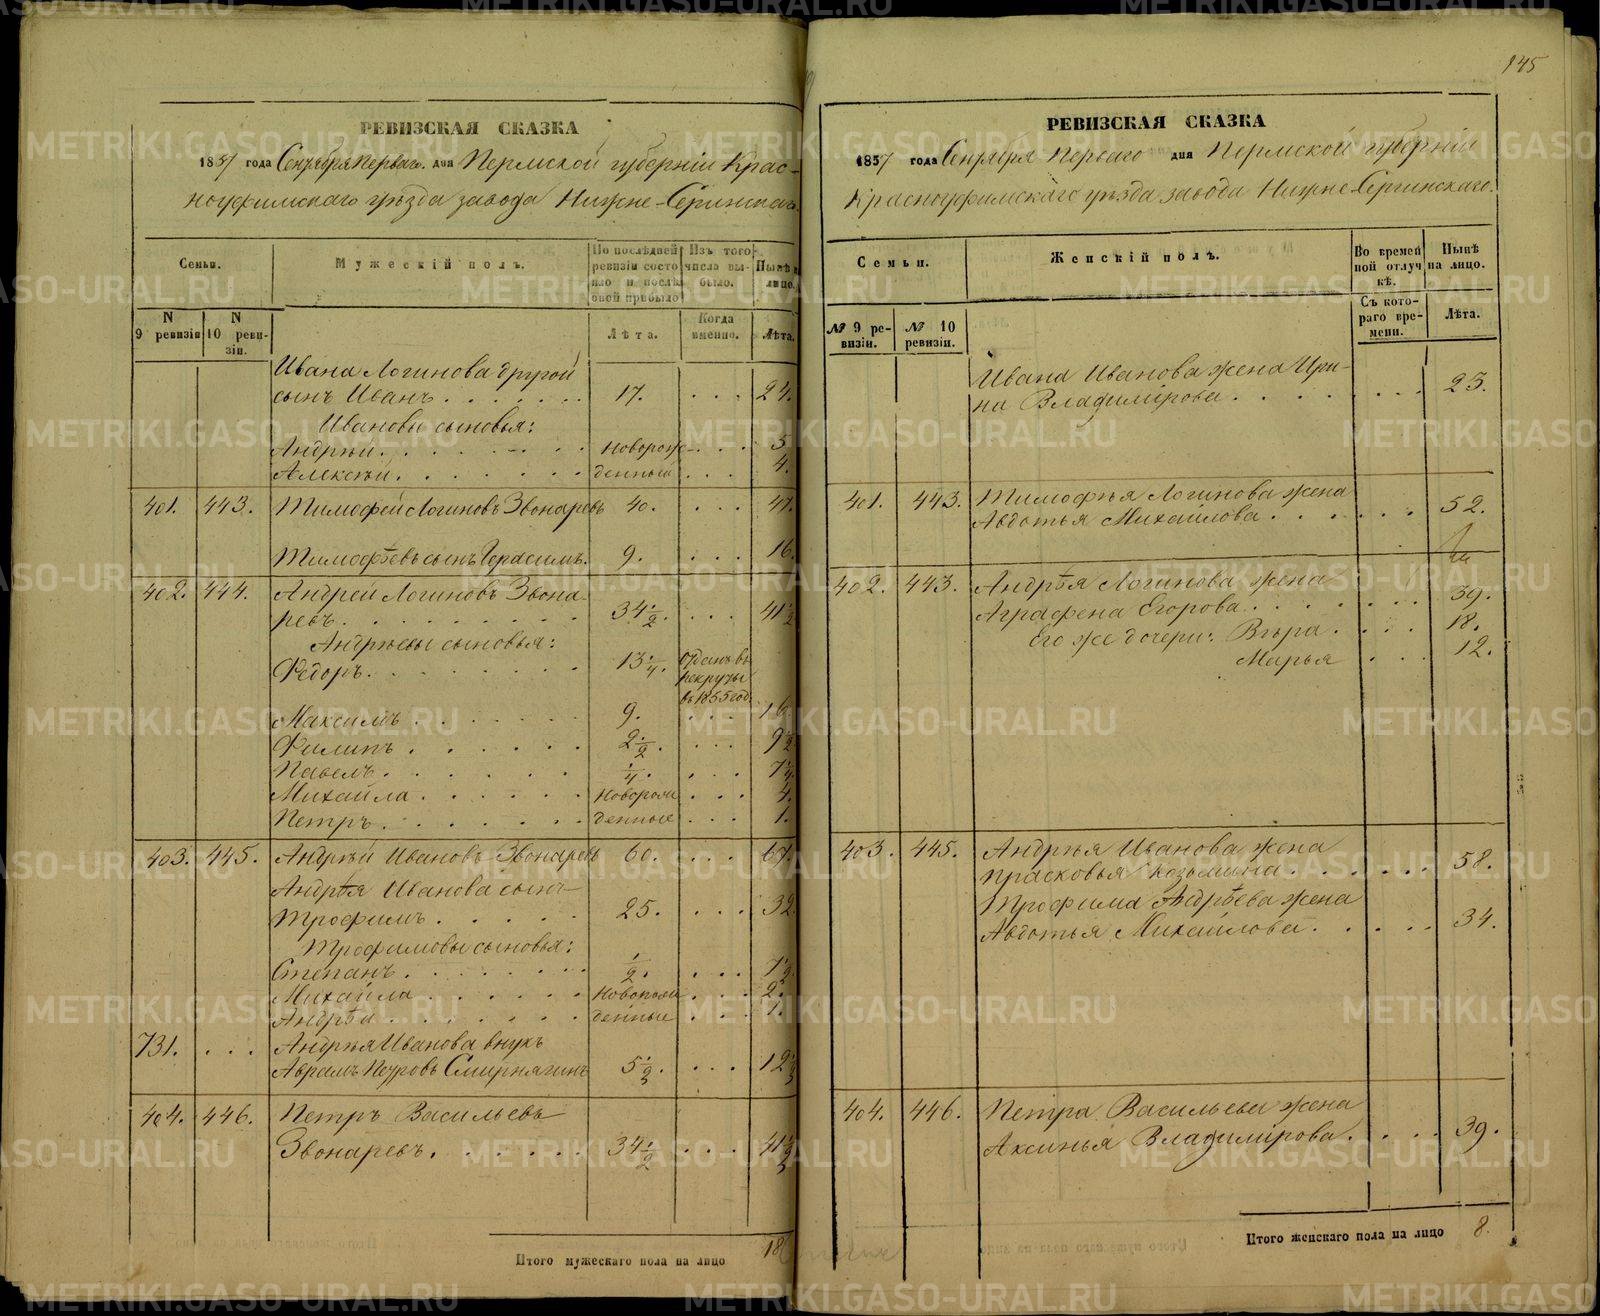 145
РЕВИЗСКАЯ СКАЗКА
1857 года Сентября Перваго дня Пермской губерніи Крас-
ноуфимскаго уѣзда завода Нижне-Сергинскаго
Семьи.
Мужескій полъ.
По послѣдней ревизіи состояло и послѣ оной прибыло
Изъ того числа выбыло.
Нынѣ на лицо.
N 9 ревизіи
N 10 ревизіи.
Лѣта.
Когда именно.
Лѣта.
Ивана Логинова другой
сынъ Иванъ . . . 17. . . . 24.
Ивановы сыновья:
Андрѣй . . . новорож- . . . 5
Алексѣй . . . денные . . . 4.
401. 443. Тимофей Логиновъ Звонаревъ 40. . . . 47.
Тимофѣевъ сынъ Герасимъ. 9. . . . 16.
402. 444. Андрей Логиновъ Звона-
ревъ . . . 34 1/2. . . . 41 1/2
Андрѣевы сыновья:
Ѳедоръ . . . 13 1/4. отданъ въ
рекруты
въ 1855 год.
Максимъ . . . 9. . . . 16.
Филипъ . . . 2 1/2. . . . 9 1/2
Павелъ . . . 1/4. . . . 7 1/4.
Михайла . . . новорож . . . 4.
Петръ . . . денные . . . 1.
403. 445. Андрѣй Ивановъ Звонаревъ 60. . . . 67.
Андрѣя Иванова сынъ
Трофимъ . . . 25. . . . 32.
Трофимовы сыновья:
Степанъ . . . 1/2. . . . 7 1/2
Михайла . . . новорож . . . 2.
Андрѣй . . . денные . . . 1.
731. . . . Андрѣя Иванова внукъ
Аврамъ Петровъ Смирнягинъ 5 1/2. . . . 12 1/2
404. 446. Петръ Васильевъ
Звонаревъ . . . 34 1/2 . . . 41 1/2
Итого мужескаго пола на лицо 18
РЕВИЗСКАЯ СКАЗКА
1857 года Сентября Перваго дня Пермской губерніи
Красноуфимскаго уѣзда завода Нижне-Сергинскаго.
Семьи.
Женскій полъ.
Во временной отлучкѣ.
Нынѣ на лицо.
№ 9 ревизіи.
№ 10 ревизіи.
Съ котораго времени.
Лѣта.
Ивана Иванова жена Ири-
на Владимірова . . . 23.
401. 443. Тимофѣя Логинова жена
Авдотья Михайлова . . . 52.
402. 443. Андрѣя Логинова жена
Аграфена Егорова . . . 39.
Его же дочери: Вѣра . . . 18.
Марья . . . 12.
403. 445. Андрѣя Иванова жена
Прасковья Козьмина . . . 58.
Трофима Андрѣева жена
Авдотья Михайлова . . . 34.
404. 446. Петра Васильева жена
Аксинья Владимірова . . . 39.
Итого женскаго пола на лицо 8.
METRIKI.GASO-URAL.RU